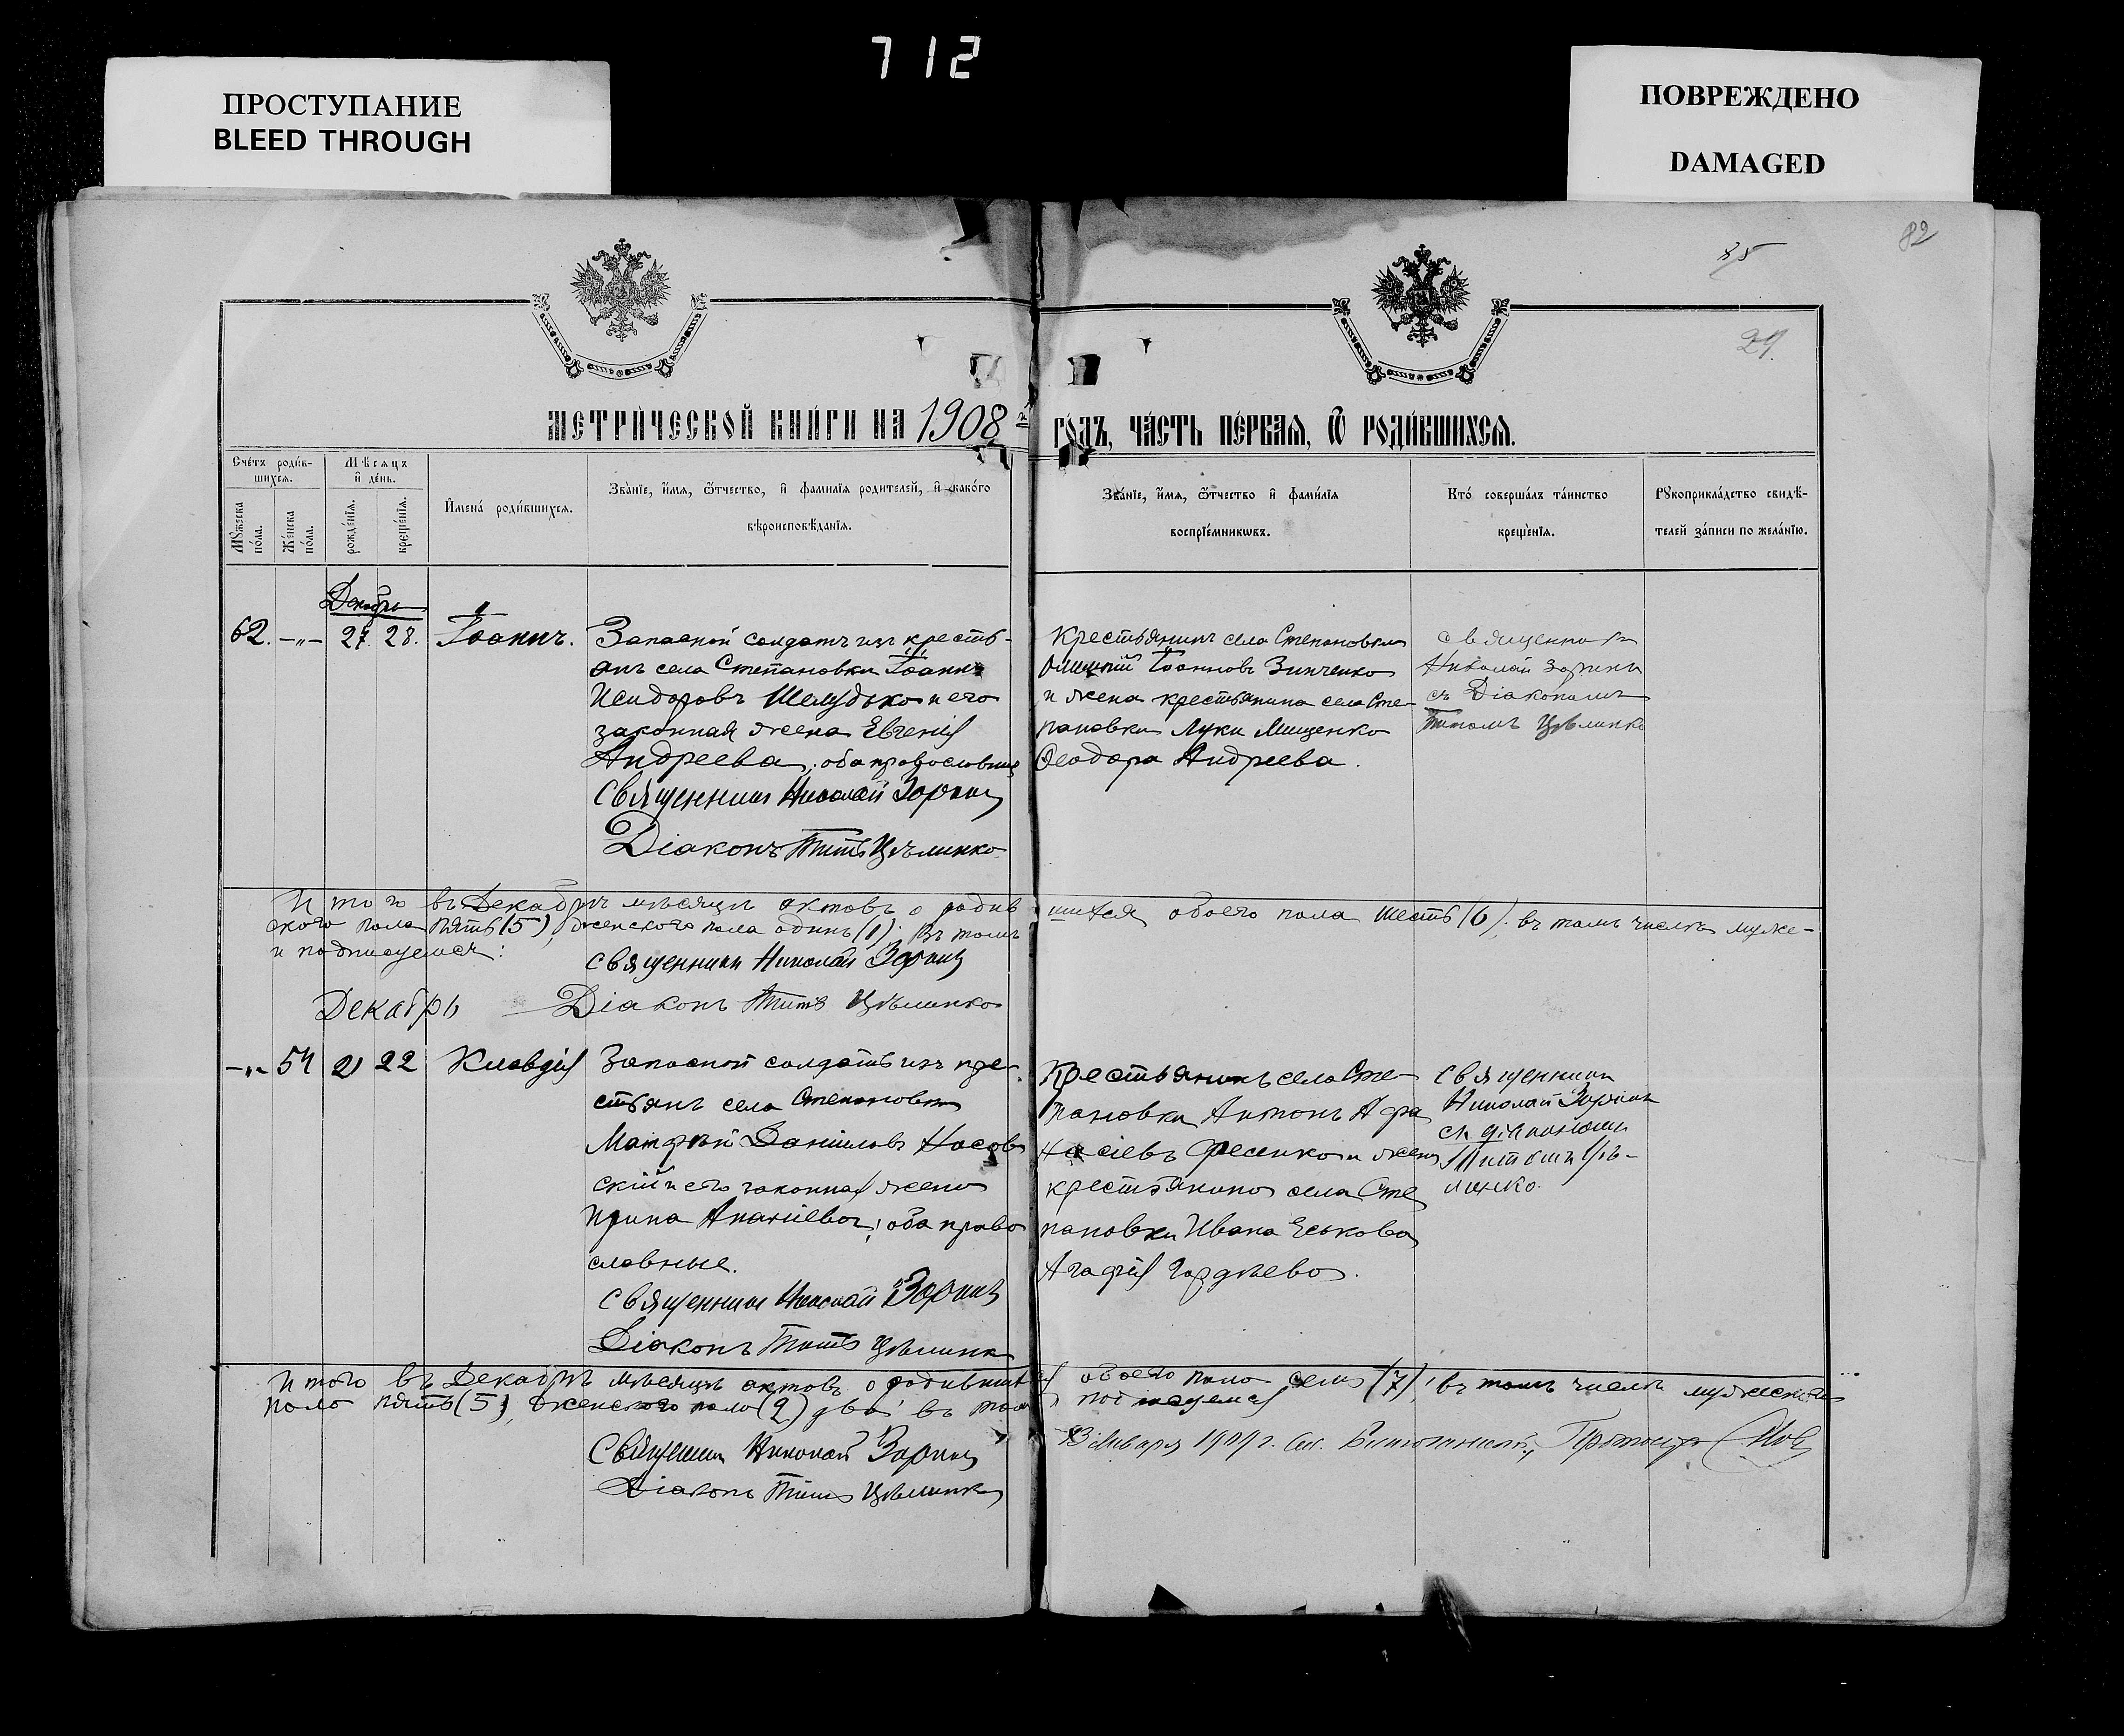 712
ПРОСТУПАНИЕ
BLEED THROUGH
ПОВРЕЖДЕНО
DAMAGED
82
85
29.
МЕТРИЧЕСКОЙ КНИГИ НА 1908 ГОДЪ, ЧАСТЬ ПЕРВАЯ, Ѿ РОДИВШИХСЯ.
Счетъ родив-
шихся.
Мѣсяцъ
и день.
Мужеска пола.
Женска пола.
рожденія.
крещенія.
Имена родившихся.
Званіе, имя, ѿтчество, и фамилія родителей, и какого
вѣроисповѣданія.
Званіе, имя, ѿтчество и фамилія
воспріемникѡвъ.
Кто совершалъ таинство
крещенія.
Рукоприкладство свидѣ-
телей записи по желанію.
Декабрь
62. -"- 27. 28. Іоаннъ.
Запасной солдатъ изъ кресть-
янъ села Степановки Іоаннъ
Исидоровъ Шелудько и его
законная жена Евгенія
Андреева; оба православные
Священникъ Николай Зоринъ
Діаконъ Титъ Цѣлинко
Крестьянинъ села Степановки
Іоанновъ Зинченко
и жена крестьянина села Сте-
пановки Луки Мищенко
Ѳеодора Андреева.
Священникъ
Николай Зоринъ
съ Діакономъ
Титомъ Цѣлинко
Итого въ Декабрѣ мѣсяцѣ актовъ о родив шихся обоего пола шесть (6); въ томъ числѣ муже-
ского пола пять (5), женского пола одинъ (1). Въ томъ
и подписуемся:
Священникъ Николай Зоринъ
Діаконъ Титъ Цѣлинко
Декабрь
-"- 54 21 22 Клавдія
Запасной солдатъ изъ кре-
стьянъ села Степановки
Матфей Даниловъ Носов
скій и его законная жена
Ирина Ананіева; оба право
славные.
Священникъ Николай Зоринъ
Діаконъ Титъ Цѣлинко
Крестьянинъ села Сте-
пановки Антонъ Афа
насіевъ Фесенко и жена
крестьянина села Сте
пановки Ивана Еськова
Агафія Гордѣева.
Священникъ
Николай Зоринъ
съ діакономъ
Титомъ Цѣ-
линко.
Итого въ Декабрѣ мѣсяцѣ актовъ о родившихся обоего пола семь (7); въ томъ числѣ мужеского
пола пять (5), женского пола (2) два; въ томъ подписуемся
Священникъ Николай Зоринъ
Діаконъ Титъ Цѣлинко
Января 1909 г.